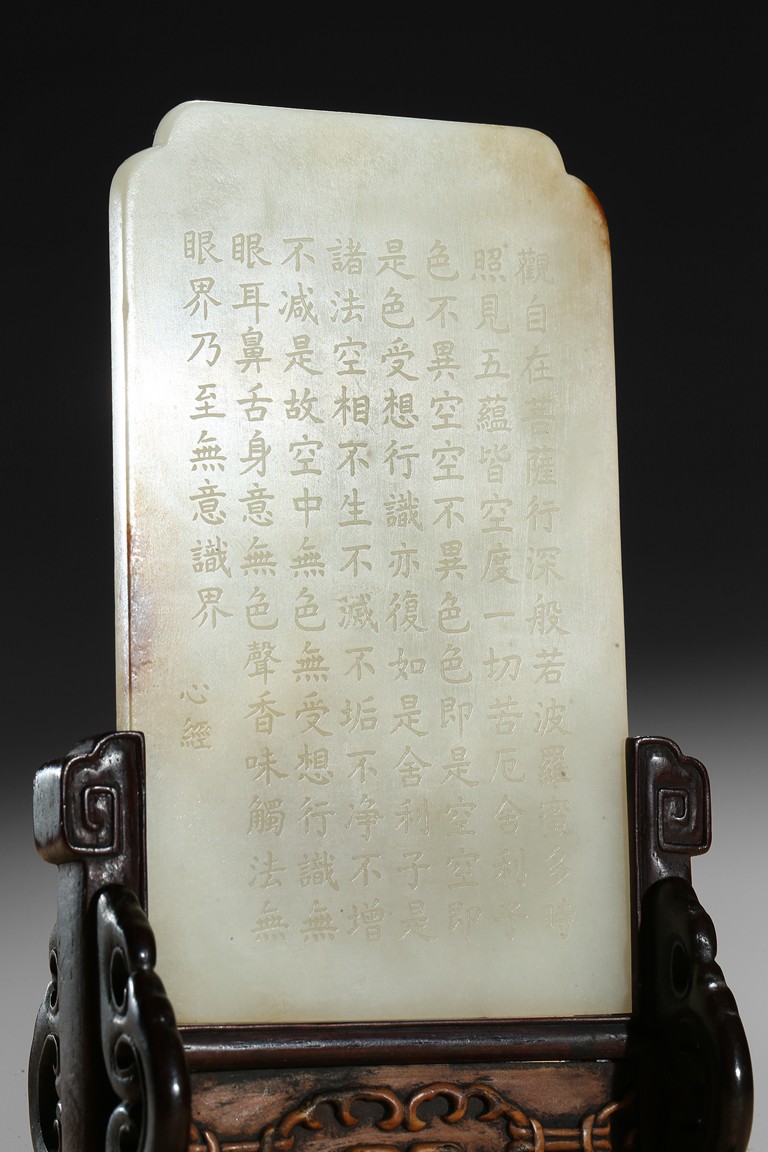 觀自在菩薩行深般若波羅蜜多時
照見五蘊皆空度一切苦厄舍利子
色不異空空不異色色即是空空即
是色受想行識亦復如是舍利子是
諸法空相不生不滅不垢不净不增
不減是故空中無色無受想行識無
眼耳鼻舌身意無色聲香味觸法無
眼界乃至無意識界
心經